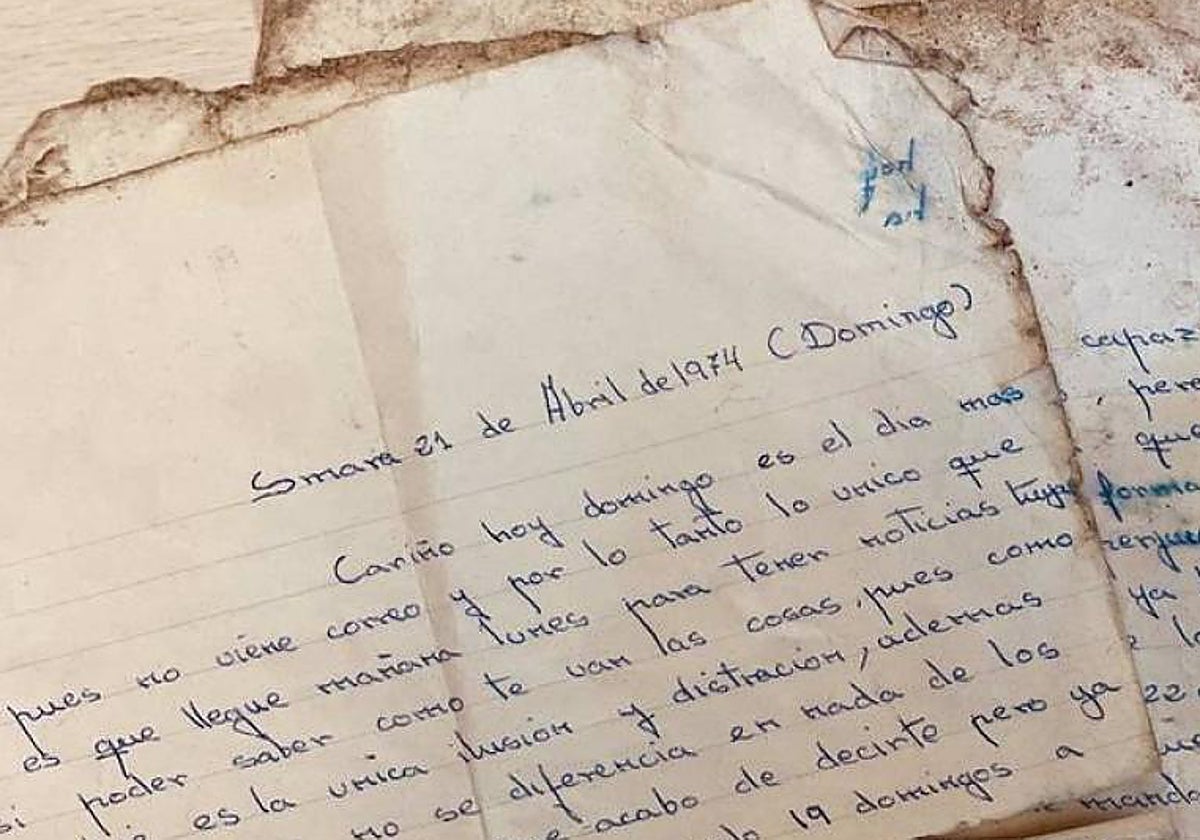 Smara 21 de Abril de 1974 (Domingo)
Cariño hoy domingo es el dia mas
pues no viene correo y por lo tanto lo unico que
es que llegue mañana lunes para tener noticias tuyas
si poder saber como te van las cosas, pues como
es la unica ilusión y distración, ademas
no se diferencia en nada de los
acabo de decirte pero ya
19 domingos a
capaz
, pero
que
forma
ya
22
mando